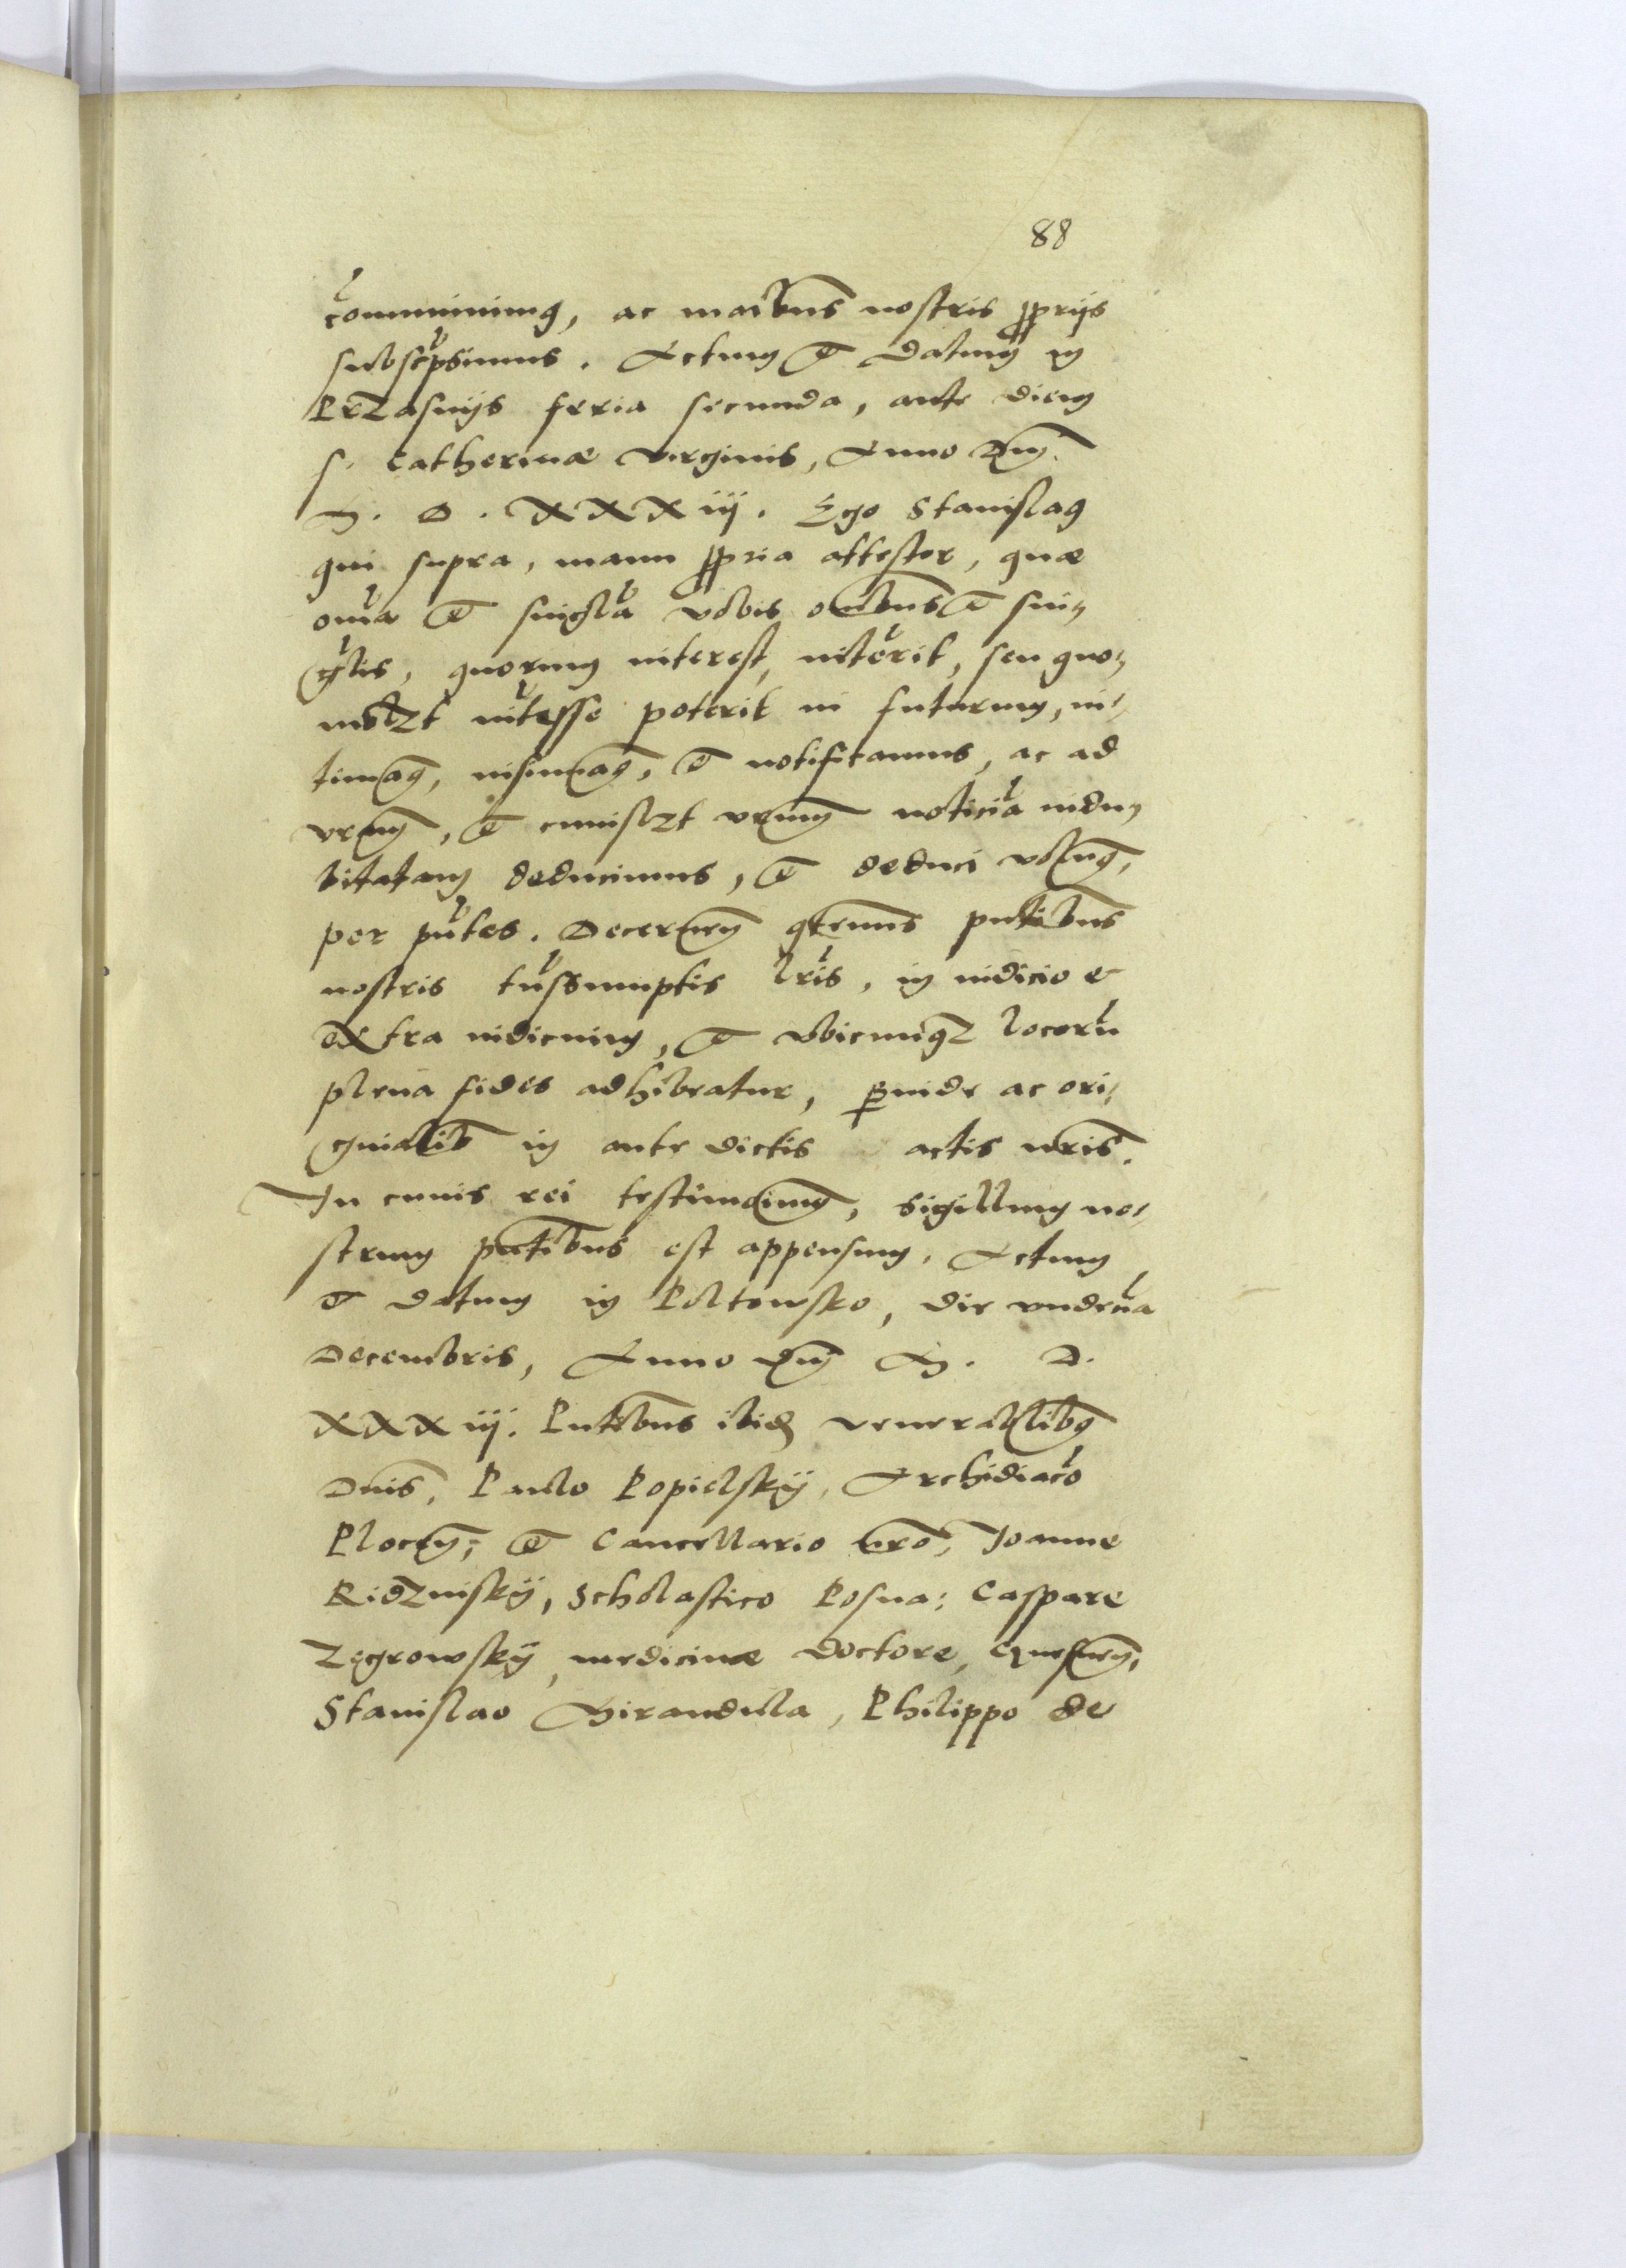 88
com̃unimus, ac manibus nostris proprijs
subscpsimus. Actum et Datum in
Przasnijs feria secunda, ante diem
S. Catherinæ virginis, Anno Dnj.
M. D. XXXiij. Ego Stanislaus
qui supra, manu propria attestor, quæ
om̃ia et singl̃a vobis omnibus et sin-
glis, quorum interest, intẽrit, seu quo-
mõlzt int̃esse poterit in futurum, in-
timamus, insinuamus, et notificamus, ac ad
vr̃am, et cuiuslzt vr̃um noticiã indu-
bitatam deducimus, et deduci volumus,
per pñtes. Decernentes quatenus pñtibus
nostris trãssumptis lr̃is, in iudicio et
extra iudicium, et vbicunqz locorũ
plena fides adhibeatur, perinde ac ori-
ginalib in ante dictis actis nr̃is.
In cuius rei testimonium, Sigillum no-
strum pñtibus est appensum. Actum
et datum in Poltowsko, die vndecĩa
Decembris, Anno Dnj M. D.
XXXiij. Pñtibus ibid venerabilibus
Dnis, Paulo Popielskÿ, Archidiacõ
Plocen, et Cancellario nr̃o, Joanne
Ridzinskÿ, Scholastico Posna: Caspare
Zegrowskÿ, medicinæ doctore,
Stanislao Mirandula, Philippo de